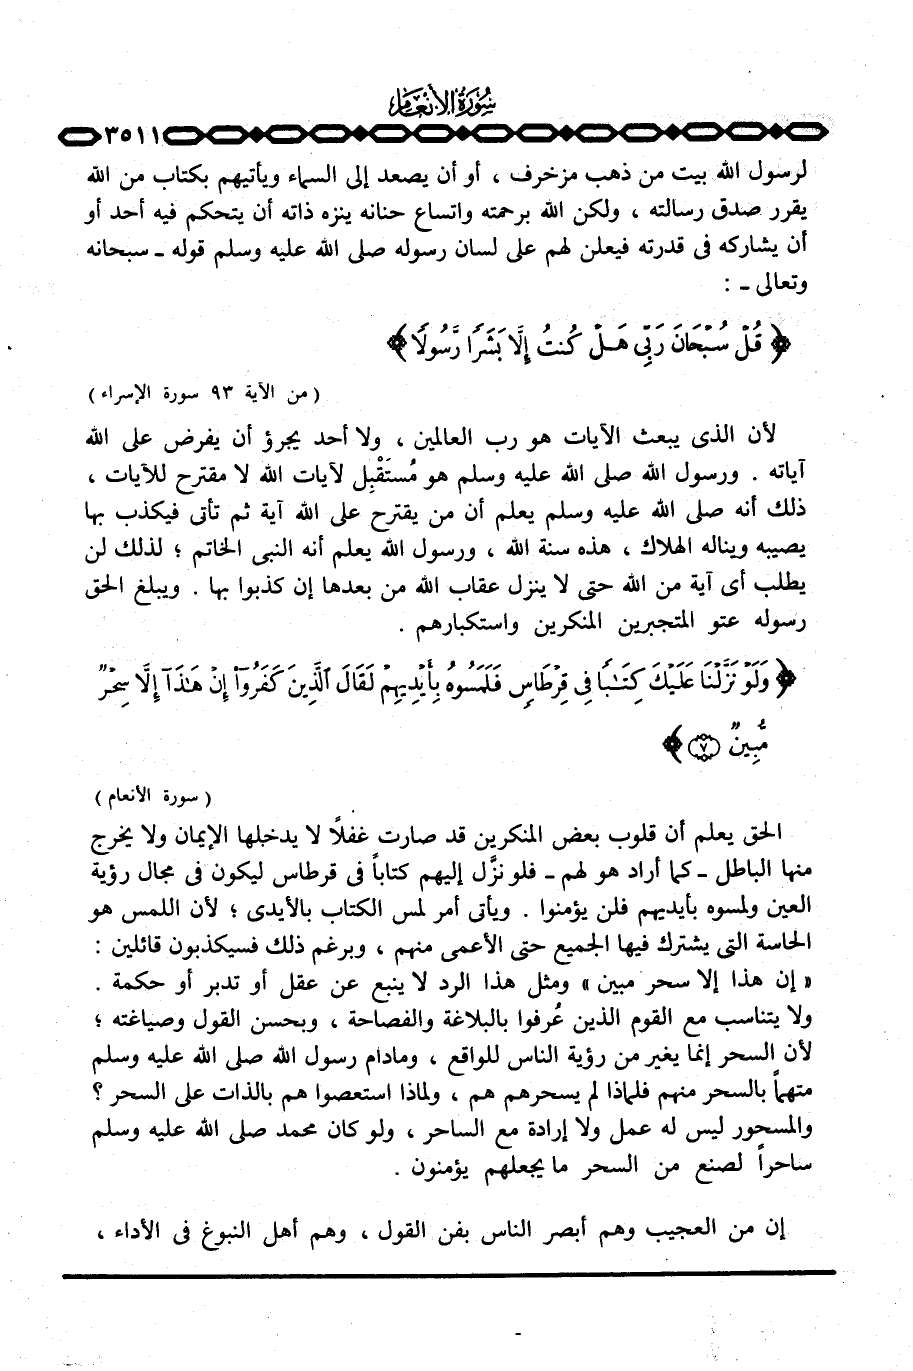 سُورَةُ الأَنْعَامِ
٣٥١١
لرسول الله بيت من ذهب مزخرف ، أو أن يصعد إلى السماء ويأتيهم بكتاب من الله
يقرر صدق رسالته ، ولكن الله برحمته واتساع حنانه ينزه ذاته أن يتحكم فيه أحد أو
أن يشاركه فى قدرته فيعلن لهم على لسان رسوله صلى الله عليه وسلم قوله ـ سبحانه
وتعالى ـ :
﴿ قُلْ سُبْحَانَ رَبِّى هَلْ كُنتُ إِلَّا بَشَرًا رَّسُولًا ﴾
( من الآية ٩٣ سورة الإسراء )
لأن الذى يبعث الآيات هو رب العالمين ، ولا أحد يجرؤ أن يفرض على الله
آياته . ورسول الله صلى الله عليه وسلم هو مُستَقْبِل لآيات الله لا مقترح للآيات ،
ذلك أنه صلى الله عليه وسلم يعلم أن من يقترح على الله آية ثم تأتى فيكذب بها
يصيبه ويناله الهلاك ، هذه سنة الله ، ورسول الله يعلم أنه النبى الخاتم ؛ لذلك لن
يطلب أى آية من الله حتى لا ينزل عقاب الله من بعدها إن كذبوا بها . ويبلغ الحق
رسوله عتو المتجبرين المنكرين واستكبارهم .
﴿ وَلَوْ نَزَّلْنَا عَلَيْكَ كِتَٰبًا فِى قِرْطَاسٍ فَلَمَسُوهُ بِأَيْدِيهِمْ لَقَالَ ٱلَّذِينَ كَفَرُوٓا۟ إِنْ هَٰذَآ إِلَّا سِحْرٌ
مُّبِينٌ ٧ ﴾
( سورة الأنعام )
الحق يعلم أن قلوب بعض المنكرين قد صارت غفلاً لا يدخلها الإيمان ولا يخرج
منها الباطل ـ كما أراد هو لهم ـ فلو نزَّل إليهم كتاباً فى قرطاس ليكون فى مجال رؤية
العين ولمسوه بأيديهم فلن يؤمنوا . ويأتى أمر لمس الكتاب بالأيدى ؛ لأن اللمس هو
الحاسة التى يشترك فيها الجميع حتى الأعمى منهم ، وبرغم ذلك فسيكذبون قائلين :
« إن هذا إلا سحر مبين » ومثل هذا الرد لا ينبع عن عقل أو تدبر أو حكمة .
ولا يتناسب مع القوم الذين عُرفوا بالبلاغة والفصاحة ، وبحسن القول وصياغته ؛
لأن السحر إنما يغير من رؤية الناس للواقع ، ومادام رسول الله صلى الله عليه وسلم
متهماً بالسحر منهم فلماذا لم يسحرهم هم ، ولماذا استعصوا هم بالذات على السحر ؟
والمسحور ليس له عمل ولا إرادة مع الساحر ، ولو كان محمد صلى الله عليه وسلم
ساحراً لصنع من السحر ما يجعلهم يؤمنون .
إن من العجيب وهم أبصر الناس بفن القول ، وهم أهل النبوغ فى الأداء ،